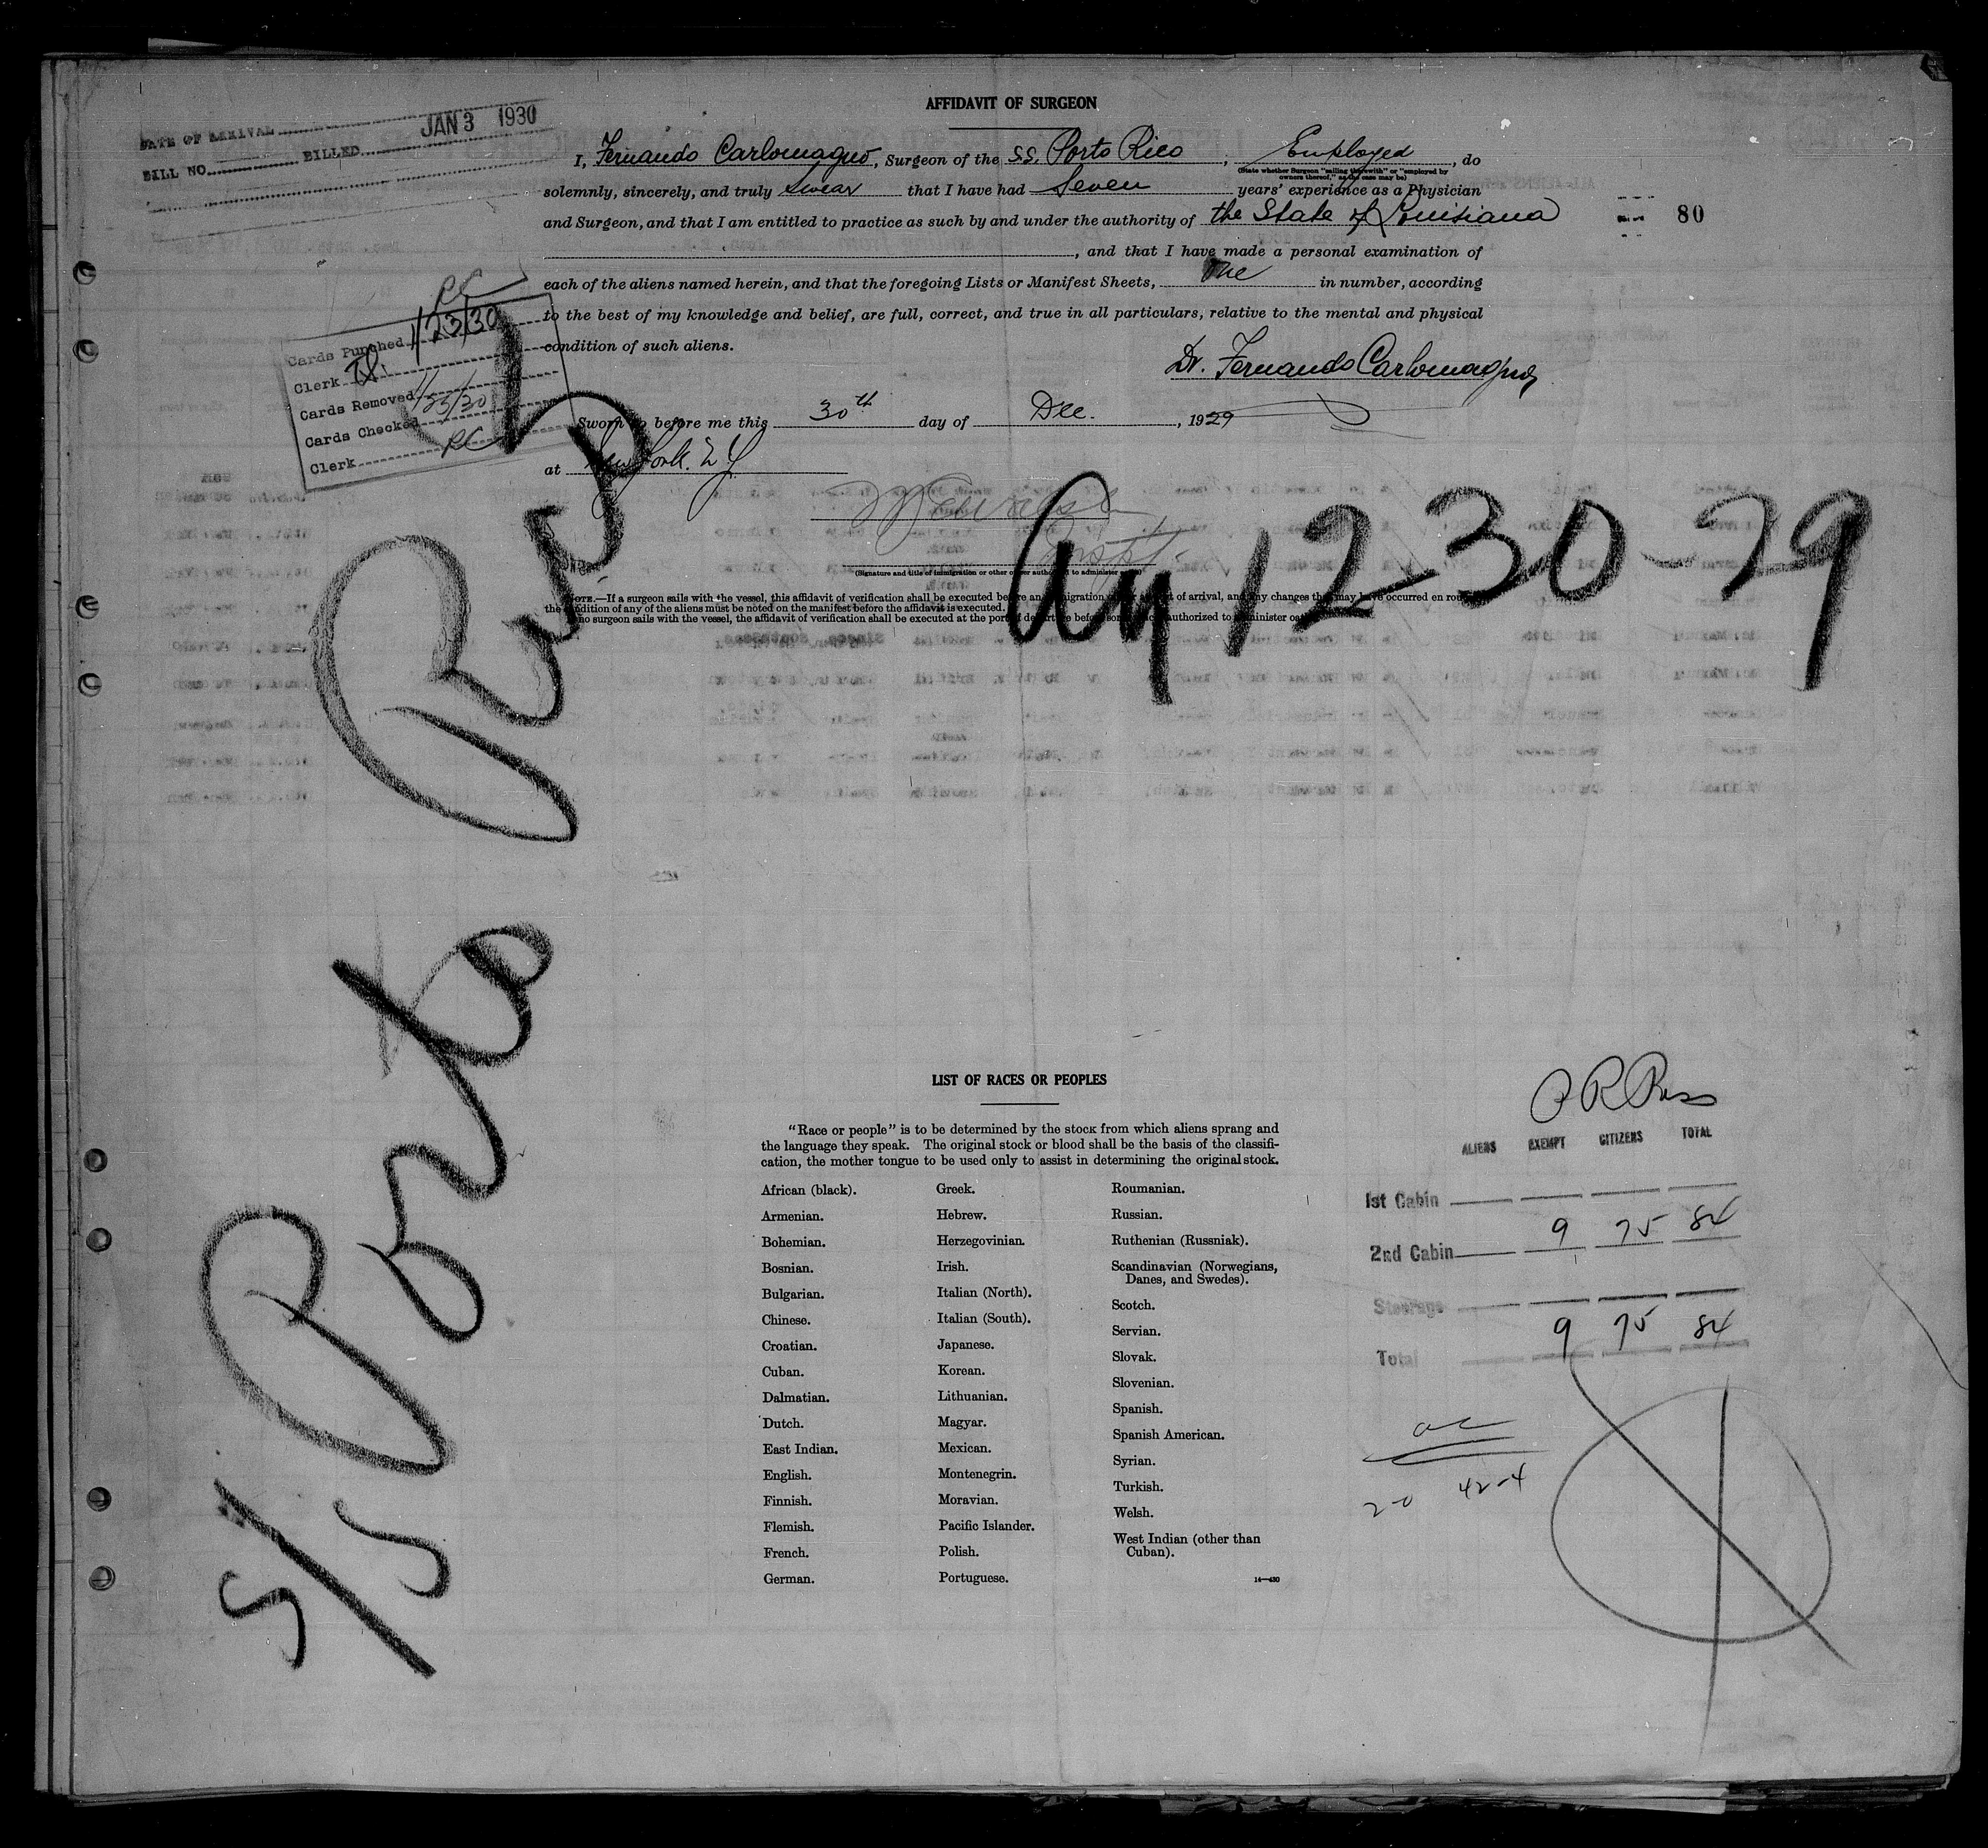 AFFIDAVIT OF SURGEON
DATE OF ARRIVAL JAN 3 1930
BILL NO. BILLED
I, Fernando Carlomagno, Surgeon of the S.S. Porto Rico, Employed, do
(State whether Surgeon "sailing therewith" or "employed by
owners thereof," as the case may be)
solemnly, sincerely, and truly swear that I have had Seven years' experience as a Physician
and Surgeon, and that I am entitled to practice as such by and under the authority of the State of Louisiana
80
, and that I have made a personal examination of
each of the aliens named herein, and that the foregoing Lists or Manifest Sheets, One in number, according
to the best of my knowledge and belief, are full, correct, and true in all particulars, relative to the mental and physical
condition of such aliens.
Dr. Fernando Carlomagno
RC
Cards Punched 1/23/30
Clerk
Cards Removed
Cards Checked 1/23/30
Clerk RC
Sworn to before me this 30th day of Dec., 1929
at New York. N Y
Inspt.
(Signature and title of immigration or other officer authorized to administer
NOTE.—If a surgeon sails with the vessel, this affidavit of verification shall be executed before an immigration officer at port of arrival, and any changes that may have occurred en route in
the condition of any of the aliens must be noted on the manifest before the affidavit is executed.
If no surgeon sails with the vessel, the affidavit of verification shall be executed at the port of departure before some officer authorized to administer oaths.
12-30-29
S/S Porto Rico
LIST OF RACES OR PEOPLES
"Race or people" is to be determined by the stock from which aliens sprang and
the language they speak. The original stock or blood shall be the basis of the classifi-
cation, the mother tongue to be used only to assist in determining the original stock.
African (black).
Armenian.
Bohemian.
Bosnian.
Bulgarian.
Chinese.
Croatian.
Cuban.
Dalmatian.
Dutch.
East Indian.
English.
Finnish.
Flemish.
French.
German.
Greek.
Hebrew.
Herzegovinian.
Irish.
Italian (North).
Italian (South).
Japanese.
Korean.
Lithuanian.
Magyar.
Mexican.
Montenegrin.
Moravian.
Pacific Islander.
Polish.
Portuguese.
Roumanian.
Russian.
Ruthenian (Russniak).
Scandinavian (Norwegians,
Danes, and Swedes).
Scotch.
Servian.
Slovak.
Slovenian.
Spanish.
Spanish American.
Syrian.
Turkish.
Welsh.
West Indian (other than
Cuban).
14—430
ALIENS EXEMPT CITIZENS TOTAL
1st Cabin
9 75 84
2nd Cabin
Steerage
9 75 84
Total
2-0 42-4